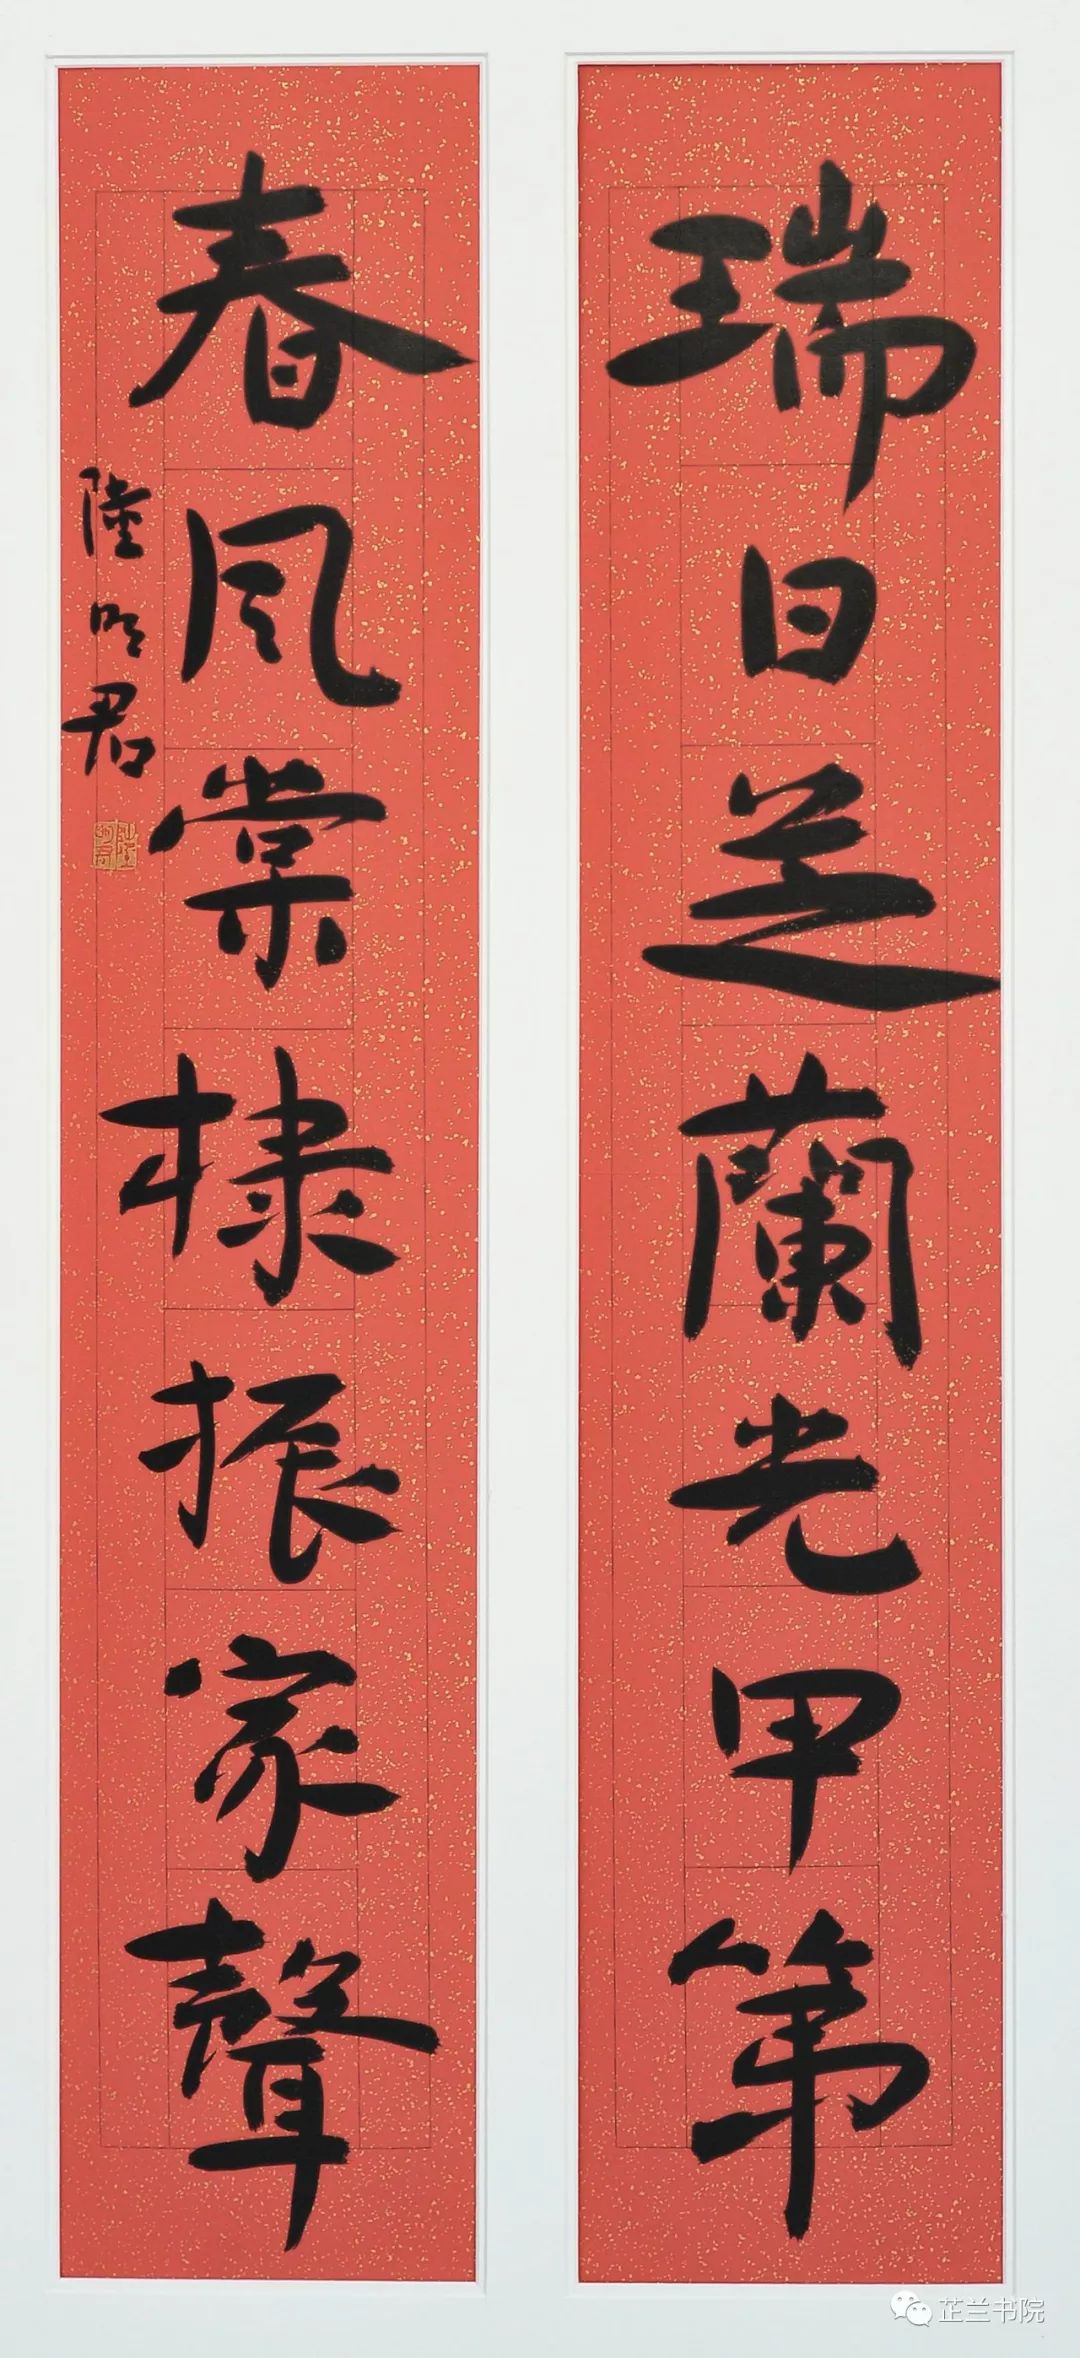 瑞日芝蘭光甲第
春風棠棣振家聲
陸明君
芷兰书院